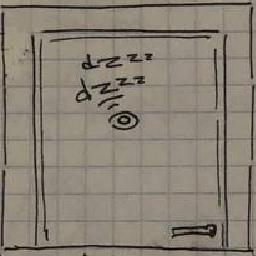 dzzzz
dzzzz